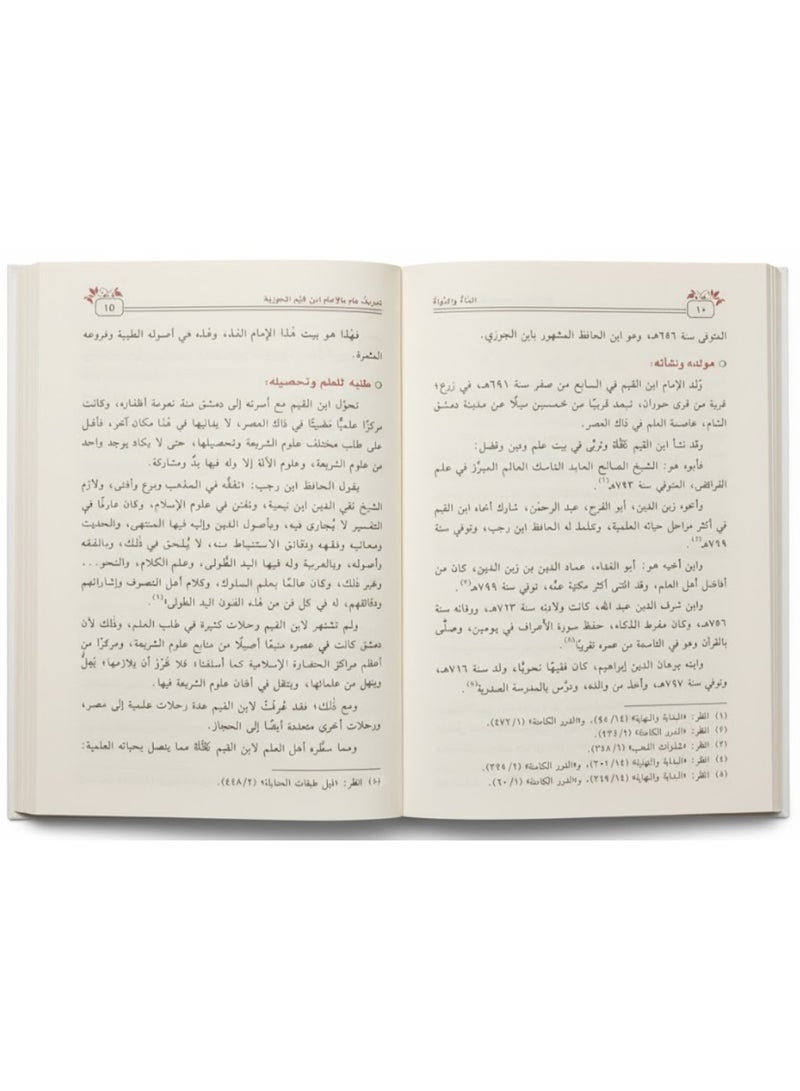 ١٠
الداء والدواء
المتوفى سنة ٦٥٦هـ، وهو ابن الحافظ المشهور بابن الجوزي.
○ مولده ونشأته:
وُلد الإمام ابن القيم في السابع من صفر سنة ٦٩١هـ، في زرع؛
قرية من قرى حوران، تبعد قريبًا من خمسين ميلًا عن مدينة دمشق
الشام، عاصمة العلم في ذاك العصر.
وقد نشأ ابن القيم وتربّى في بيت علم ودين وفضل:
فأبوه هو: الشيخ الصالح العابد الناسك العالم المبرّز في علم
الفرائض، المتوفى سنة ٧٩٣هـ(١).
وأخوه زين الدين، أبو الفرج، عبد الرحمٰن، شارك أخاه ابن القيم
في أكثر مراحل حياته العلمية، وتتلمذ له الحافظ ابن رجب، وتوفي سنة
٧٦٩هـ
وابن أخيه هو: أبو الفداء، عماد الدين بن زين الدين، كان من
أفاضل أهل العلم، وقد اقتنى أكثر مكتبة عمّه، توفي سنة ٧٩٩هـ
وابن شرف الدين عبد الله، كانت ولادته سنة ٧٢٣هـ، ووفاته سنة
٧٥٦هـ، وكان مفرط الذكاء، حفظ سورة الأعراف في يومين، وصلّى
بالقرآن وهو في التاسعة من عمره تقريبًا
وابنه برهان الدين إبراهيم، كان فقيهًا نحويًا، ولد سنة ٧١٦هـ،
وتوفي سنة ٧٦٧هـ، وأخذ من والده، ودرّس بالمدرسة الصدرية(٥).
(١) انظر: «البداية والنهاية» (٩٥/١٤)، و«الدرر الكامنة» (٤٧٢/١).
(٢) انظر: «الدرر الكامنة»
(٣) انظر: «شذرات الذهب»
(٤) انظر: «البداية والنهاية» و«الدرر الكامنة»
(٥) انظر: «البداية والنهاية» و«الدرر الكامنة» (٦٠/١).
تعريف عام بالإمام ابن قيّم الجوزية
فهٰذا هو بيت هٰذا الإمام الفذ، وهٰذه في أصوله الطيبة وفروعه
المثمرة.
○ طلبه للعلم وتحصيله:
تحوّل ابن القيم مع أسرته إلى دمشق منذ نعومة أظفاره، وكانت
مركزًا علميًا مُضيئًا في ذاك العصر، لا يدانيها في هٰذا مكان آخر، فأقبل
على طلب مختلف علوم الشريعة وتحصيلها، حتى لا يكاد يوجد واحد
من علوم الشريعة، وعلوم الآلة إلا وله فيها يدٌ ومشاركة.
يقول الحافظ ابن رجب: «تفقّه في المذهب وبرع وأفتى، ولازم
الشيخ تقي الدين ابن تيمية، وتفنن في علوم الإسلام، وكان عارفًا في
التفسير لا يُجارى فيه، وبأصول الدين وإليه فيها المنتهى، والحديث
ومعانيه وفقهه ودقائق الاستنباط منه، لا يُلحق في ذٰلك، وبالفقه
وأصوله، وبالعربية وله فيها اليد الطُّولى، وعلم الكلام، والنحو...
وغير ذٰلك، وكان عالمًا بعلم السلوك، وكلام أهل التصوف وإشاراتهم
ودقائقهم، له في كل فن من هٰذه الفنون اليد الطولى»
ولم تشتهر لابن القيم رحلات كثيرة في طلب العلم، وذٰلك لأن
دمشق كانت في عصره منبعًا أصيلًا من منابع علوم الشريعة، ومركزًا من
أعظم مراكز الحضارة الإسلامية كما أسلفنا؛ فلا غَرْوَ أن يلازمها؛
وينهل من علمائها، ويتنقل في أفنان علوم الشريعة فيها.
ومع ذٰلك؛ فقد عُرفتْ لابن القيم عدة رحلات علمية إلى مصر،
ورحلات أخرى متعددة أيضًا إلى الحجاز.
ومما سطّره أهل العلم لابن القيم مما يتصل بحياته العلمية:
انظر: «ذيل طبقات الحنابلة» (٤٤٨/٢).